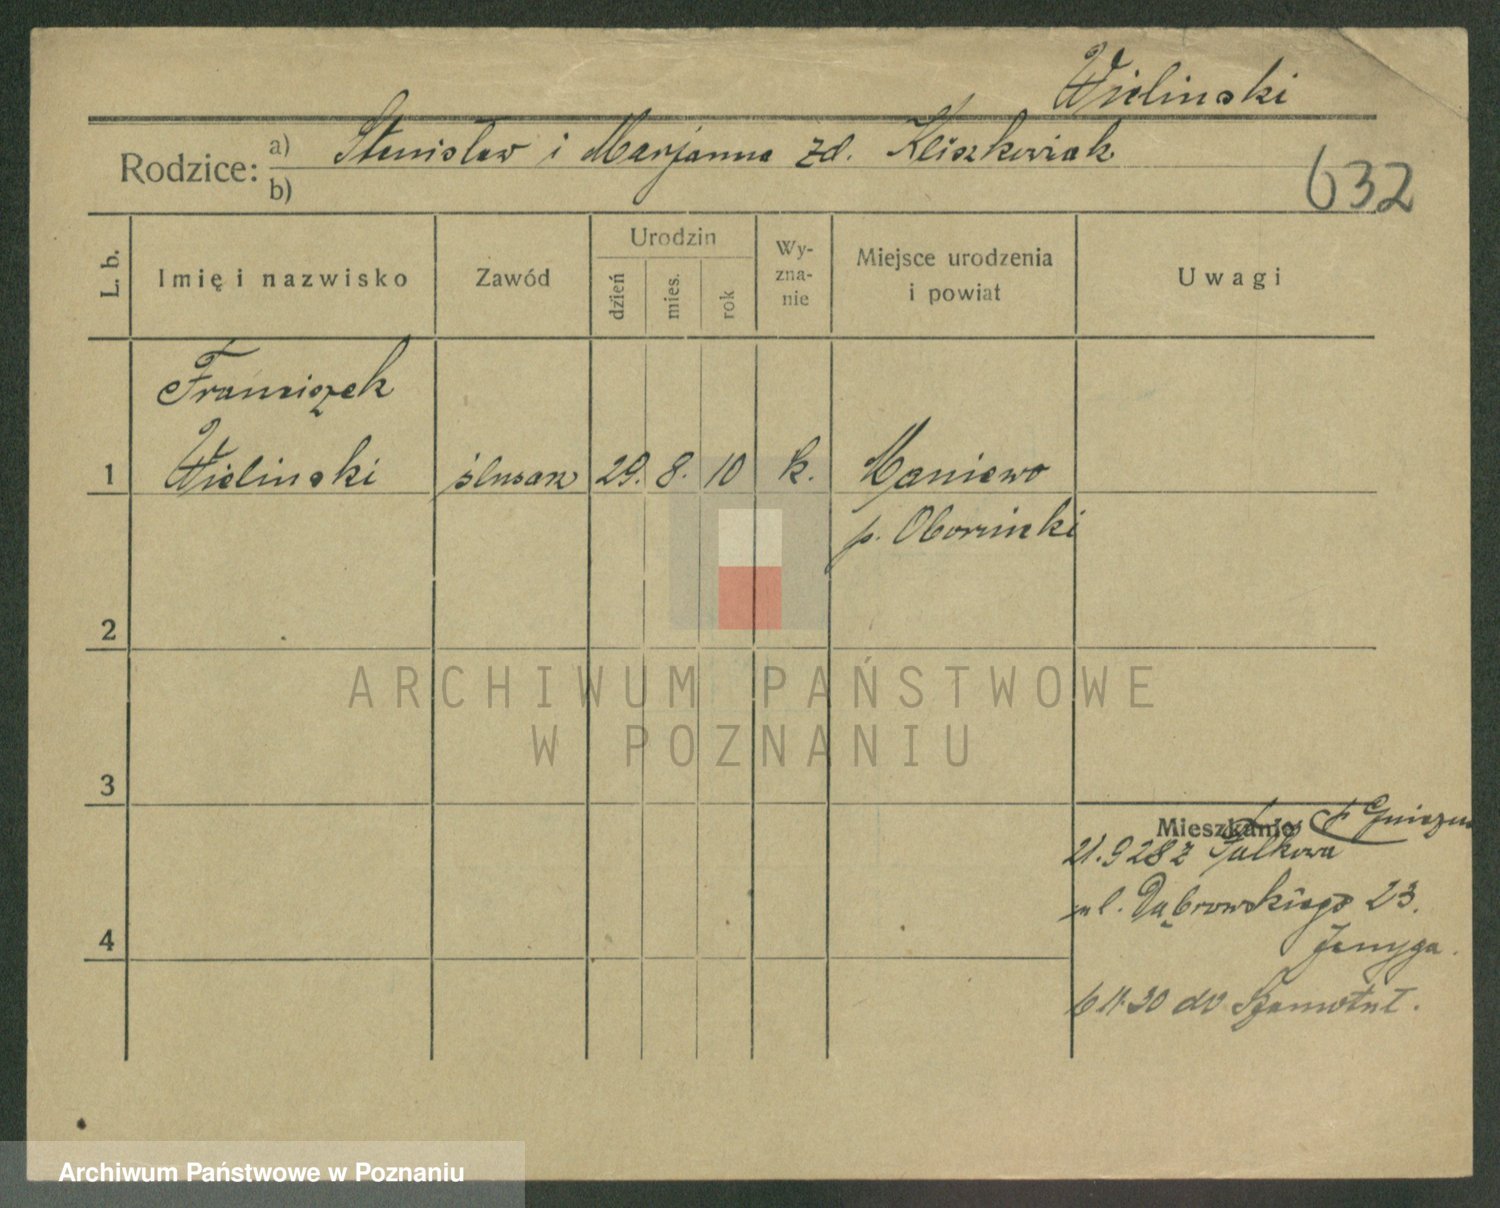 Wielinski
Rodzice: a) Stanisław i Marjanna zd. Kliszkowiak
b)
632
L. b. Imię i nazwisko Zawód Urodzin dzień mies. rok Wyznanie Miejsce urodzenia i powiat Uwagi
Franciszek
1 Wielinski ślusarz 29. 8. 10 k. Maniewo
p. Obornicki
2
ARCHIWUM PAŃSTWOWE
W POZNANIU
3
Mieszkanie
21.9 28 z Fałkowa p. Gniezno
ul. Dąbrowskiego 23.
4
6 11 30 do Szamotuł.
Archiwum Państwowe w Poznaniu